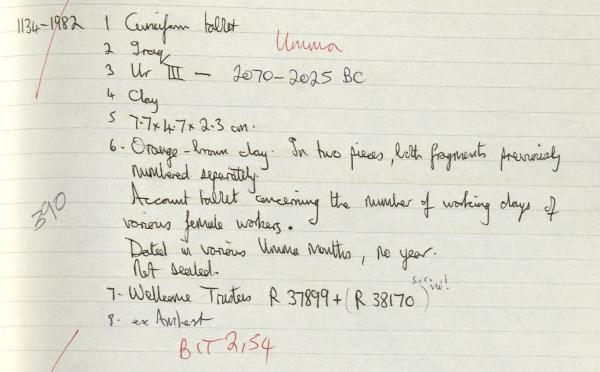 1134-1982 1 Cuneiform tablet
2 Iraq Umma
3 Ur III - 2070-2025 BC
4 Clay
5 7.7 x 4.7 x 2.3 cm.
6. Orange-brown clay. In two pieces, both fragments previously
numbered separately.
Account tablet concerning the number of working days of
390 various female workers.
Dated in various Umma months, no year.
Not sealed.
7. Wellcome Trustees R 37899 + (R 38170)
8. ex Amherst
BIT 2,54